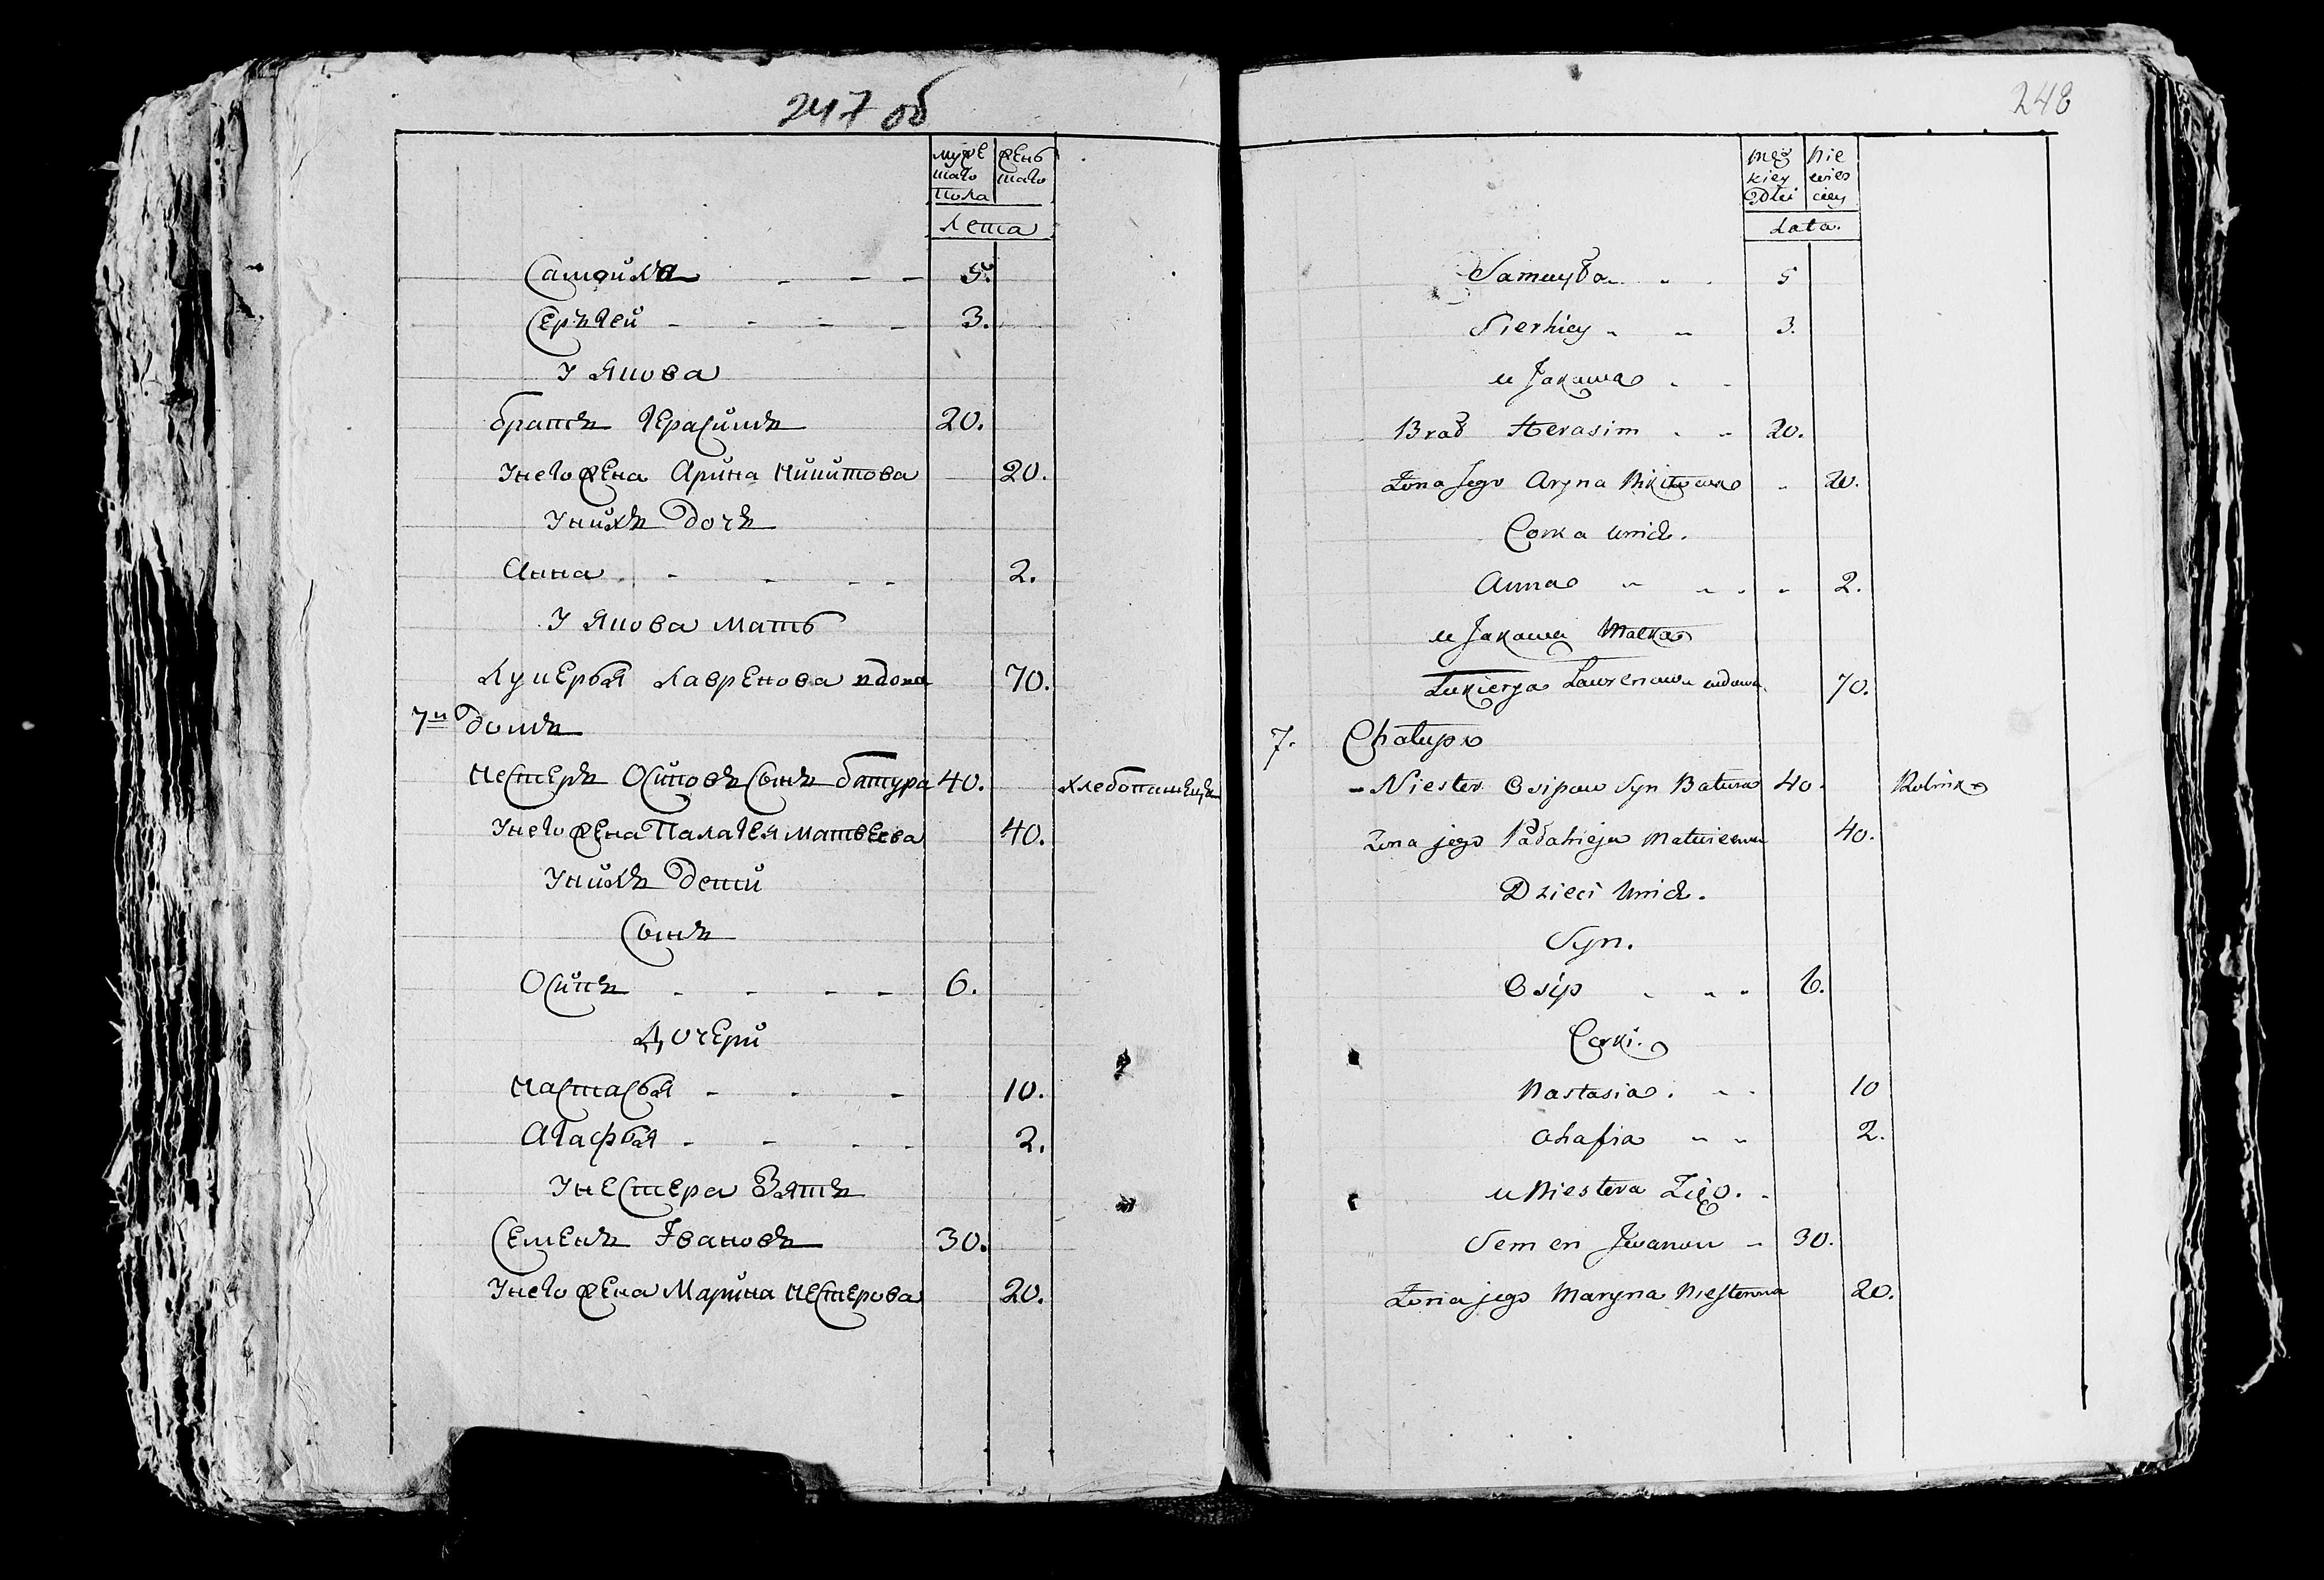 247 об
муже женъ
шаго шаго
пола
лета
Самойла - - - 5.
Сергей - - - - 3.
У Якова
братъ Герасимъ 20.
Унего жена Арина Никитова 20.
Унихъ дочь
Анна - - - - 2.
У Якова мать
Лукерья Лавренова вдова 70.
7й домъ
Нестеръ Осиповъ сынъ батура 40. хлебопашецъ
Унего жена Палагея матвеева 40.
Унихъ дети
Сынъ
Осипъ - - - - 6.
Дочери
Настасья - - - 10.
Агафья - - - - 2.
Унестера Зять
Семенъ Ивановъ 30.
Унего жена Марина Нестерова 20.
248
męz nie
kiey wies
Płci ciey
Lata.
Samuyła 5
Sierhiey 3.
u Jakawa
Brad Herasim 20.
Żona Jego Aryna Nikitowa 20.
Corka unich.
Anna 2.
u Jakawa Matka
Łukierya Lawrenowa wdowa 70.
7. Chałupa
- Niester Osipow Syn Batura 40. Rolnik
Zona jego Pałahieja Matwiewa 40.
Dzieci unich.
Syn.
Osip 6.
Corki.
Nastasia. 10
Ahafia 2.
u Niestera Zięć.
Semen Iwanow - 30.
Żona jego Maryna Niesterowa 20.